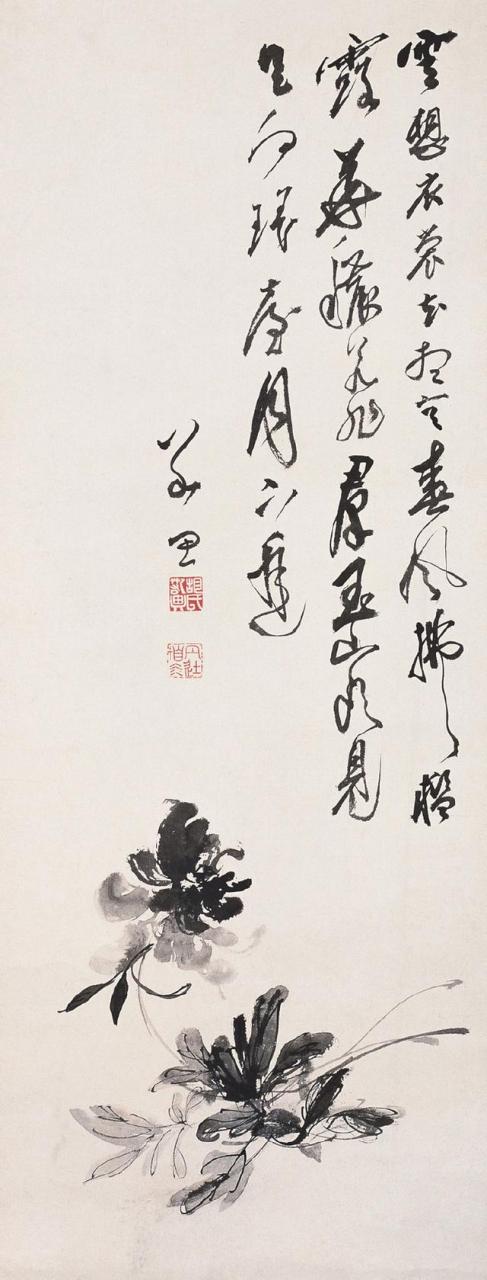 雲想衣裳花想容春風拂檻
露華濃若非羣玉山頭見
會向瑤臺月下逢